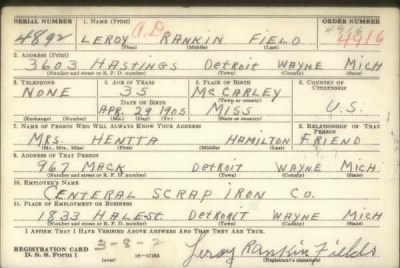 SERIAL NUMBER 1. NAME (Print) ORDER NUMBER
4892 LEROY A.D RANKIN FIELD 4916
(First) (Middle) (Last)
2. ADDRESS (Print)
3603 HASTINGS DETROIT WAYNE MICH
(Number and street or R. F. D. number) (Town) (County) (State)
3. TELEPHONE 4. AGE IN YEARS 5. PLACE OF BIRTH 6. COUNTRY OF CITIZENSHIP
NONE 35 MCCARLEY
DATE OF BIRTH (Town or county)
APR. 29 1905 MISS U.S.
(Exchange) (Number) (Mo.) (Day) (Yr.) (State or country)
7. NAME OF PERSON WHO WILL ALWAYS KNOW YOUR ADDRESS 8. RELATIONSHIP OF THAT PERSON
MRS. HENTTA HAMILTON FRIEND
(Mr., Mrs., Miss) (First) (Middle) (Last)
9. ADDRESS OF THAT PERSON
967 MACK DETROIT WAYNE MICH.
(Number and street or R. F. D. number) (Town) (County) (State)
10. EMPLOYER'S NAME
CENTERAL SCRAP IRON CO.
11. PLACE OF EMPLOYMENT OR BUSINESS
1833 HALE ST. DETROIT WAYNE MICH
(Number and street or R. F. D. number) (Town) (County) (State)
I AFFIRM THAT I HAVE VERIFIED ABOVE ANSWERS AND THAT THEY ARE TRUE.
REGISTRATION CARD 3-8-2 Leroy Rankin Fields
D. S. S. Form 1 (over) (Registrant's signature)